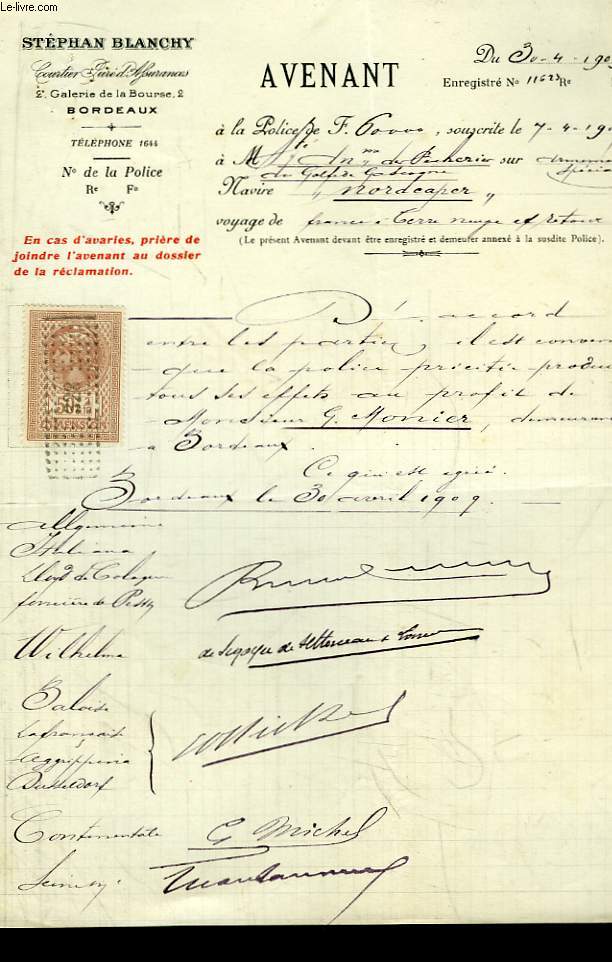 Le-livre.com
STÉPHAN BLANCHY
Courtier Juré d'Assurances
2, Galerie de la Bourse, 2
BORDEAUX
TÉLÉPHONE 1644
No de la Police
Re Fo
En cas d'avaries, prière de
joindre l'avenant au dossier
de la réclamation.
AVENANT
Du 30-4-190
Enregistré No 11623 Re
à la Police de F. 60000, souscrite le 7-4-190
à M de Pêcheries sur
du Golfe de Gascogne
Navire "Nordcaper"
voyage de france à Terre neuve et retour
(Le présent Avenant devant être enregistré et demeurer annexé à la susdite Police).
50
DIMENSION
D' accord
entre les parties, il est conven
que la police précitée produi
tous ses effets au profit de
Monsieur G. Monier, demeurant
a Bordeaux.
Ce qui est agréé.
Bordeaux le 30 avril 1909.
Allgemeine
Italiana
Lloyd de Cologne
foncière de Pesth
Wilhelma
de Segogne de
Baloise
La française
Aggrippina
Dusseldorf
Continentale
G Michel